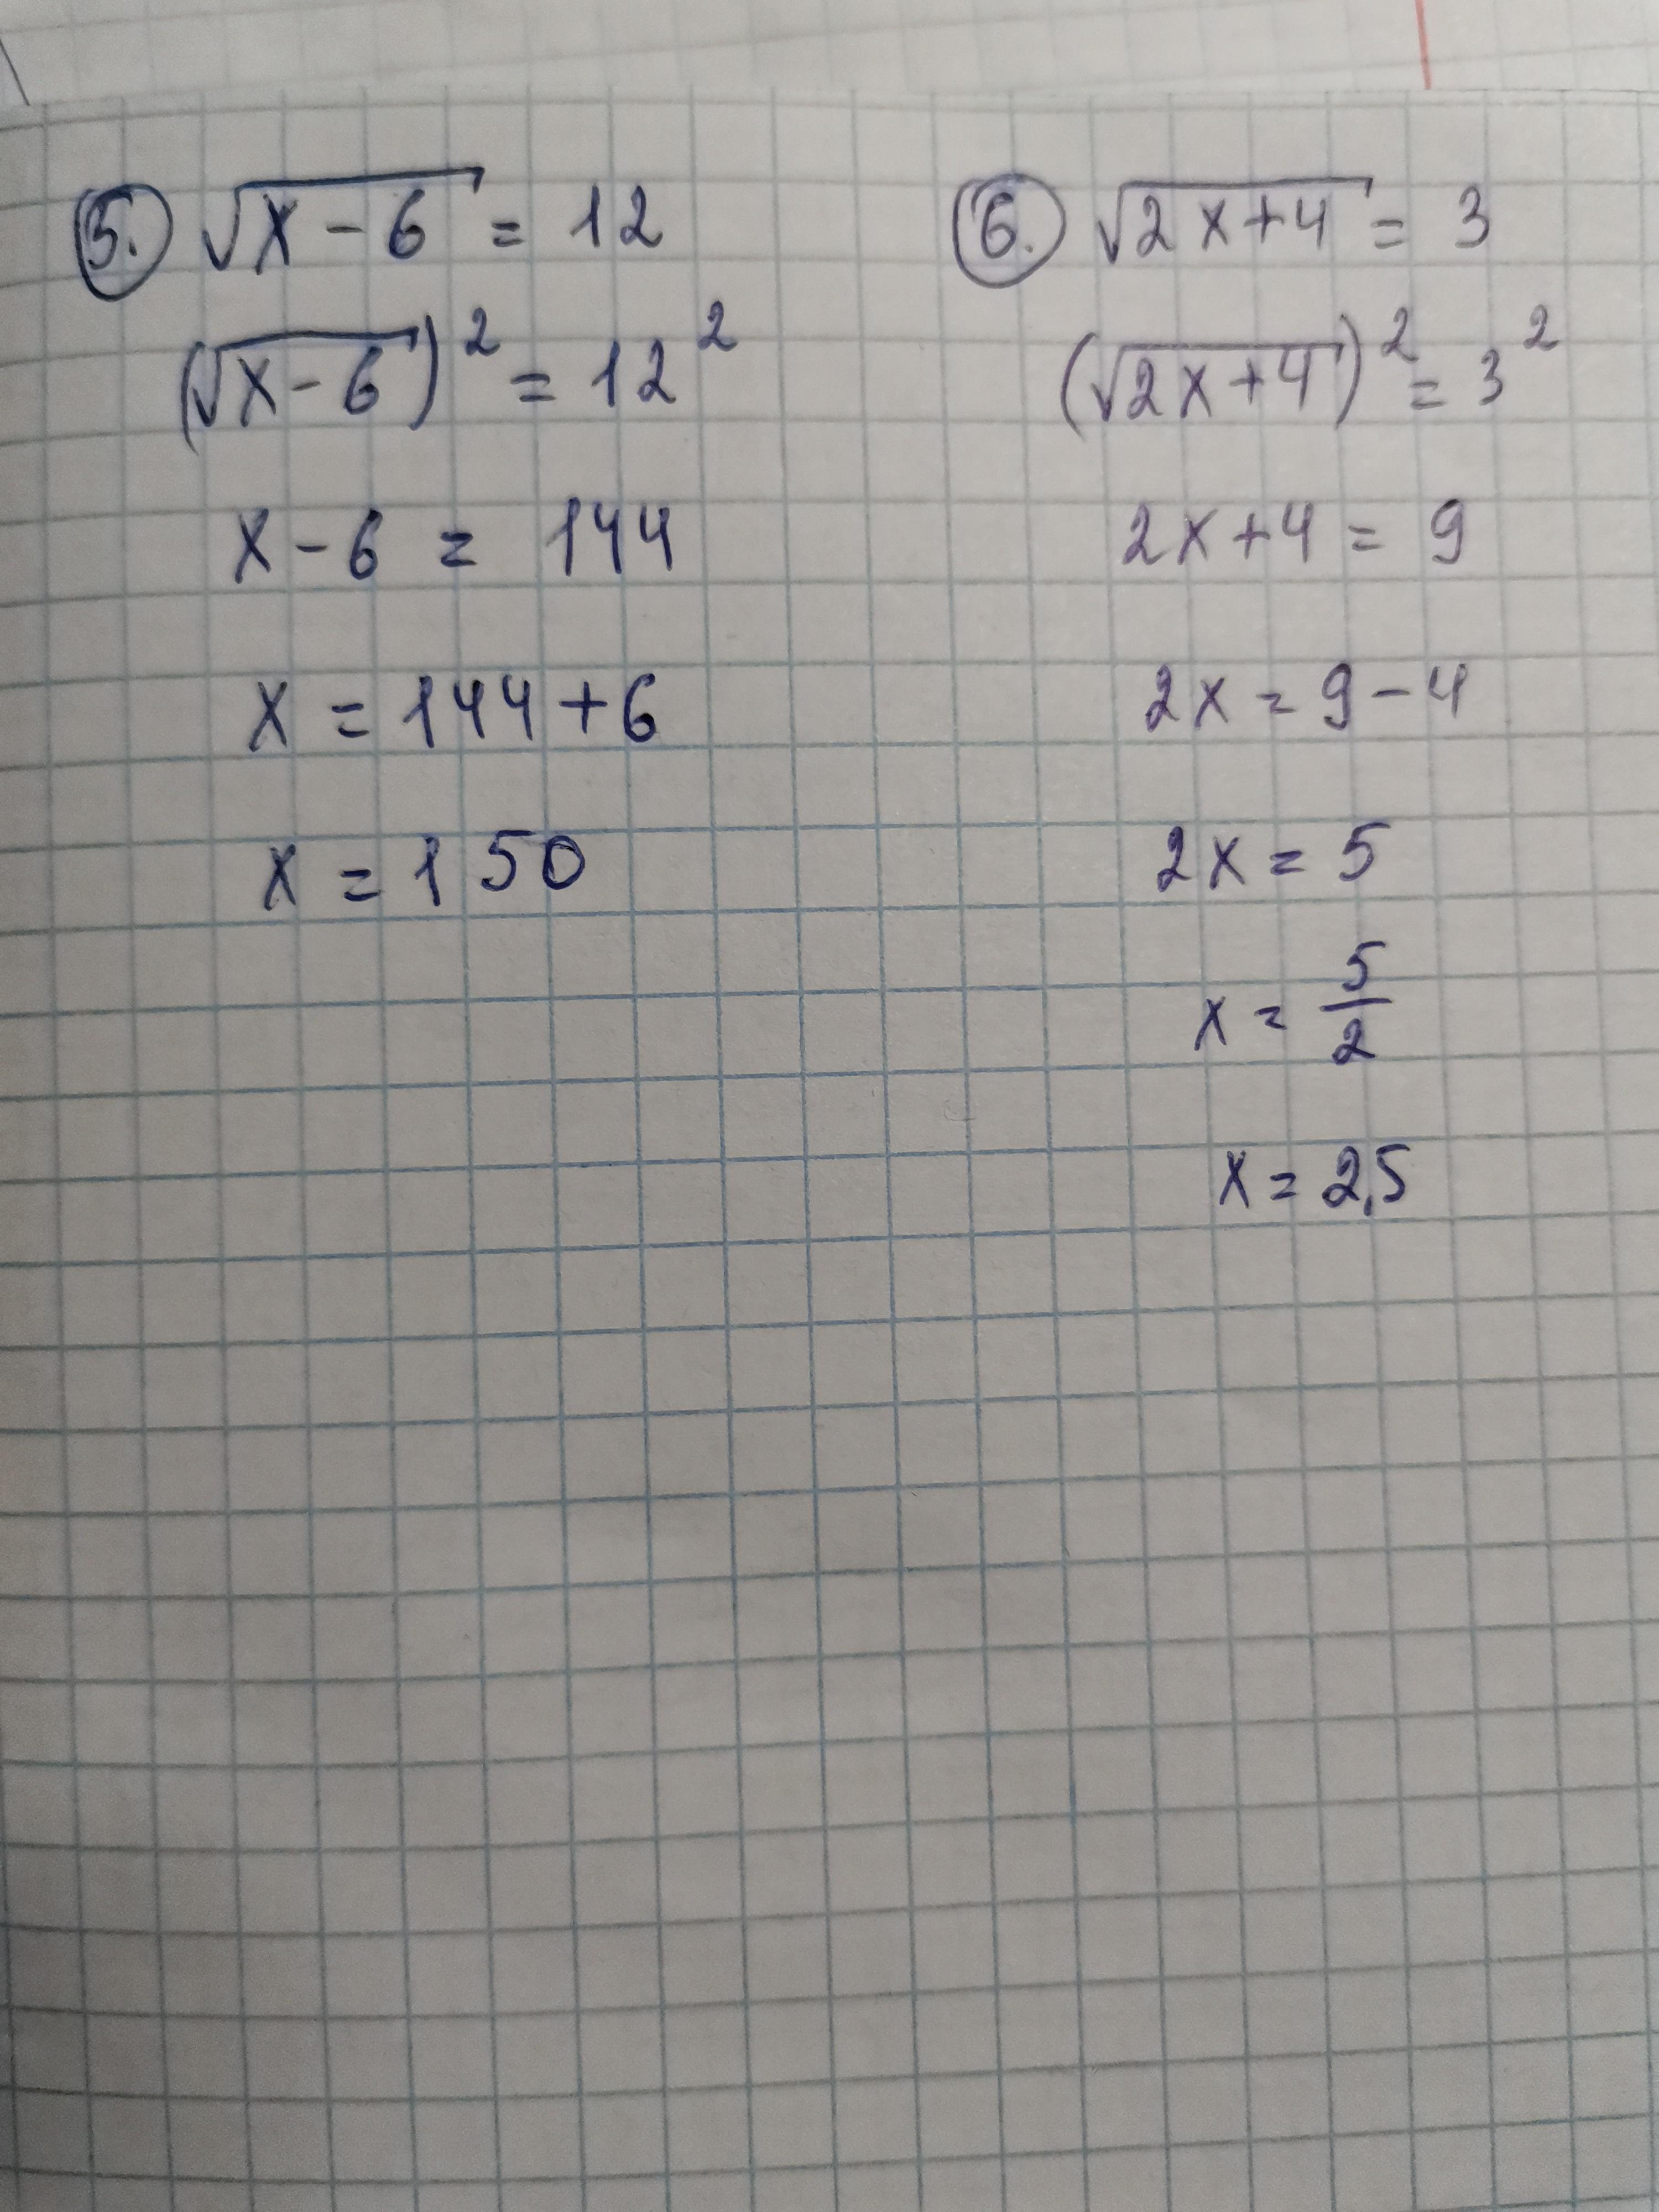 5. √(x-6) = 12
(√(x-6))² = 12²
x-6 = 144
x = 144+6
x = 150
6. √(2x+4) = 3
(√(2x+4))² = 3²
2x+4 = 9
2x = 9-4
2x = 5
x = 5/2
x = 2,5